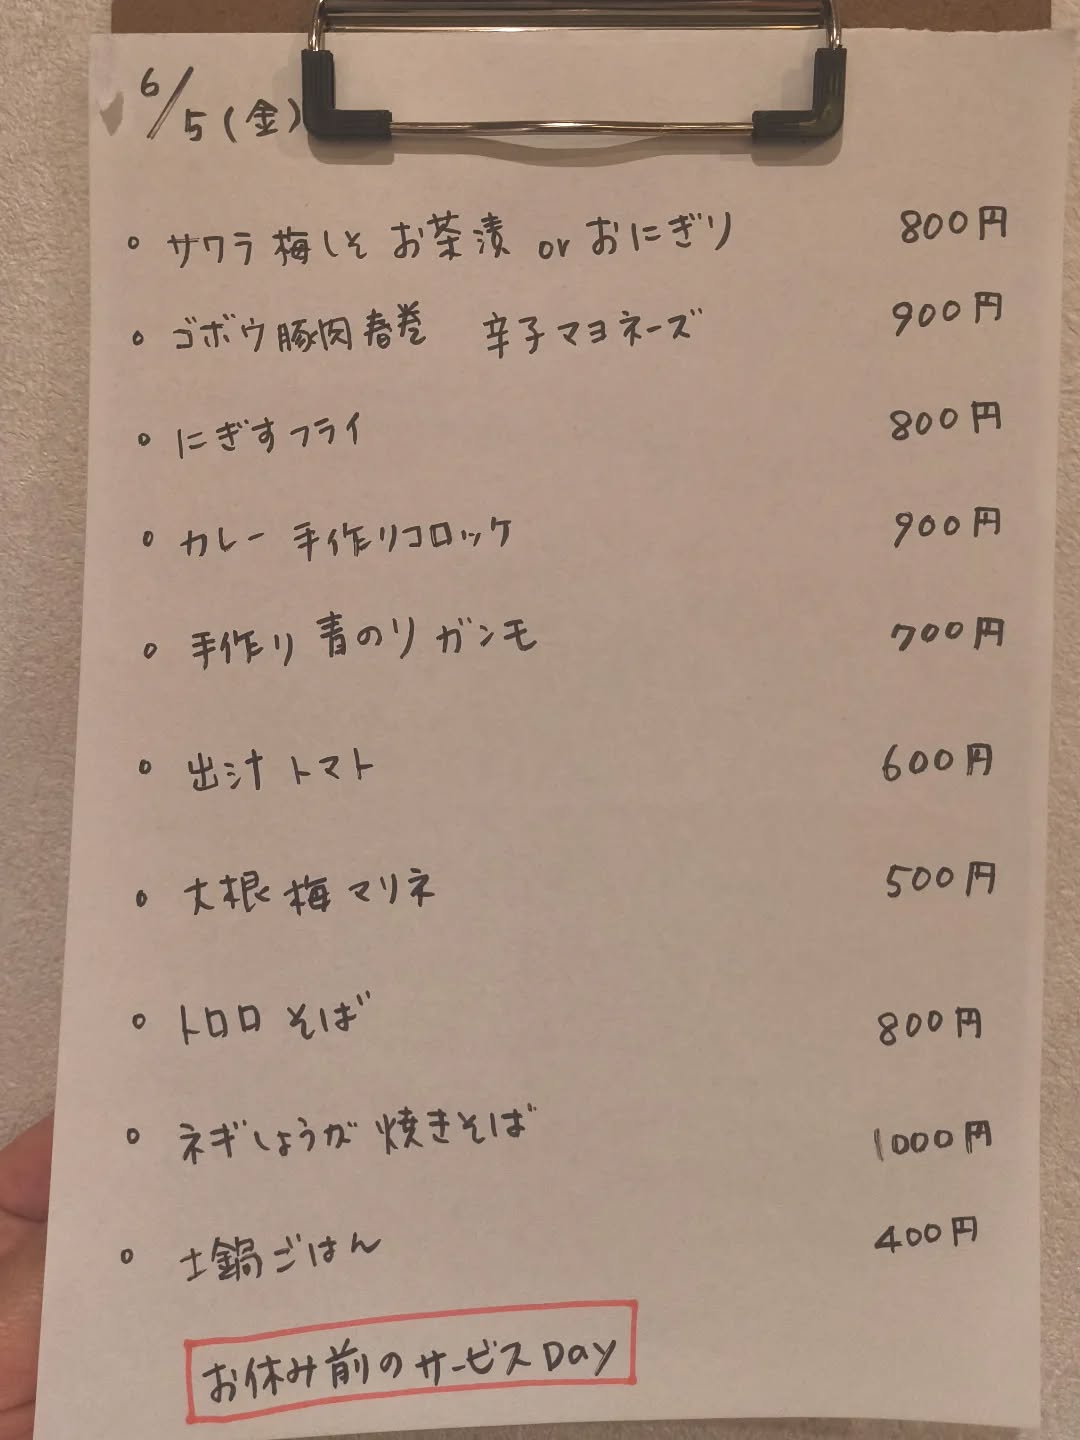 6/5(金)
。サワラ梅しそ お茶漬 or おにぎり 800円
。ゴボウ豚肉春巻 辛子マヨネーズ 900円
。にぎすフライ 800円
。カレー 手作りコロッケ 900円
。手作り 青のり ガンモ 700円
。出汁トマト 600円
。大根 梅マリネ 500円
。トロロ そば 800円
。ネギしょうが 焼きそば 1000円
。土鍋ごはん 400円
お休み前のサービスDay